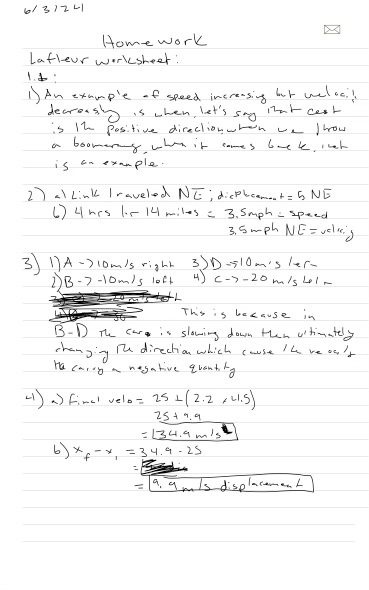 6/3/24
Homework
Lafleur worksheet:
1.1:
1) An example of speed increasing but velocity
decreasing is when, let's say that east
is the positive direction when we throw
a boomerang, when it comes back, that
is an example.
2) a) Link traveled NE; displacement = 5 NE
b) 4 hrs for 14 miles = 3.5mph = speed
3.5mph NE = velocity
3) 1) A -> 10 m/s right 3) D -> 10 m/s
2) B -> -10 m/s left 4) C -> -20 m/s
This is because in
B-D the car is slowing down then ultimately
changing the direction which cause the
the carry a negative quantity
4) a) final velo = 25 + (2.2 × 4.5)
25 + 9.9
= 34.9 m/s
b) xf - x1 = 34.9 - 25
=
= 9.9 m/s displacement